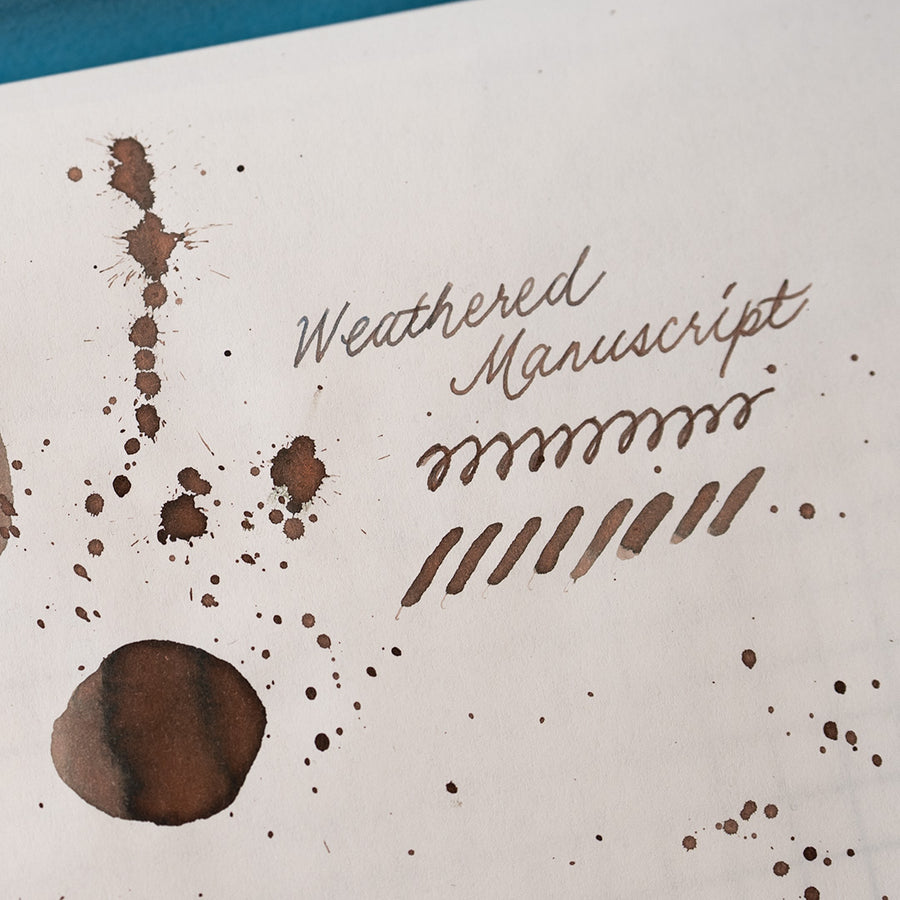 Weathered
Manuscript